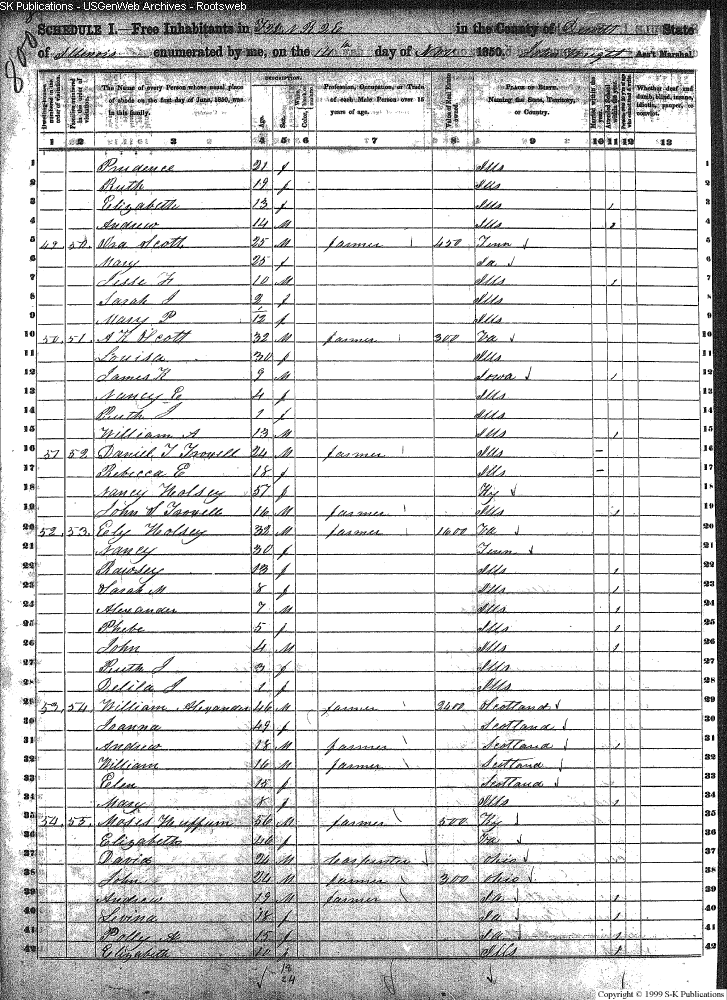 SK Publications - USGenWeb Archives - Rootsweb
800
SCHEDULE I.—Free Inhabitants in in the County of Dewitt State
of Illinois enumerated by me, on the 14th day of Nov 1850. Ass't Marshal.
Dwelling-houses numbered in the order of visitation.
Families numbered in the order of visitation.
The Name of every Person whose usual place of abode on the first day of June, 1850, was in this family.
DESCRIPTION.
Age.
Sex.
Color,
Profession, Occupation, or Trade of each Male Person over 15 years of age.
Value of Real Estate owned.
PLACE OF BIRTH. Naming the State, Territory, or Country.
Married within the year.
Attended School within the year.
Whether deaf and dumb, blind, insane, idiotic, pauper, or convict.
1 2 3 4 5 6 7 8 9 10 11 12 13
1 Prudence 21 f Ills 1
2 Ruth 19 f Ills 2
3 Elizabeth 13 f Ills 1 3
4 Andrew 14 M Ills 4
5 49 50 Scott 25 M farmer 450 Tenn 5
6 Mary 25 f Ia 6
7 Jesse F 10 M Ills 1 7
8 Sarah J 2 f Ills 8
9 Mary P 1/12 f Ills 9
10 50 51 A K Scott 32 M farmer 300 Va 10
11 Louisa 30 f Ills 11
12 James K 9 M Iowa 1 12
13 Nancy E 4 f Ills 13
14 Ruth J 1 f Ills 14
15 William A 13 M Ills 1 15
16 51 52 Daniel T Trowell 24 M farmer Ills – 16
17 Rebecca E 18 f Ills – 17
18 Nancy Holsey 57 f Ky 18
19 John S Trowell 16 M farmer Ills 1 19
20 52 53 Ely Holsey 32 M farmer 1600 Va 20
21 Nancy 30 f Tenn 21
22 Rawsey 13 f Ills 1 22
23 Sarah M 8 f Ills 1 23
24 Alexander 7 M Ills 1 24
25 Phebe 5 f Ills 1 25
26 John 4 M Ills 1 26
27 Ruth J 3 f Ills 27
28 Delila J 1 f Ills 28
29 53 54 William Alexander 46 M farmer 2400 Scotland 29
30 Joanna 49 f Scotland 30
31 Andrew 18 M farmer Scotland 1 31
32 William 16 M farmer Scotland 32
33 Elen 15 f Scotland 33
34 Mary 8 f Ills 1 34
35 54 55 Moses Huffum 56 M farmer 500 Ky 35
36 Elizabeth 46 f Va 36
37 David 24 M Carpenter Ohio 37
38 John 22 M farmer 300 Ohio 38
39 Andrew 19 M farmer Ia 1 39
40 Levina 18 f Ia 1 40
41 Polly A 15 f Ia 1 41
42 Elizabeth 10 f Ills 1 42
18
24
Copyright © 1999 S-K Publications